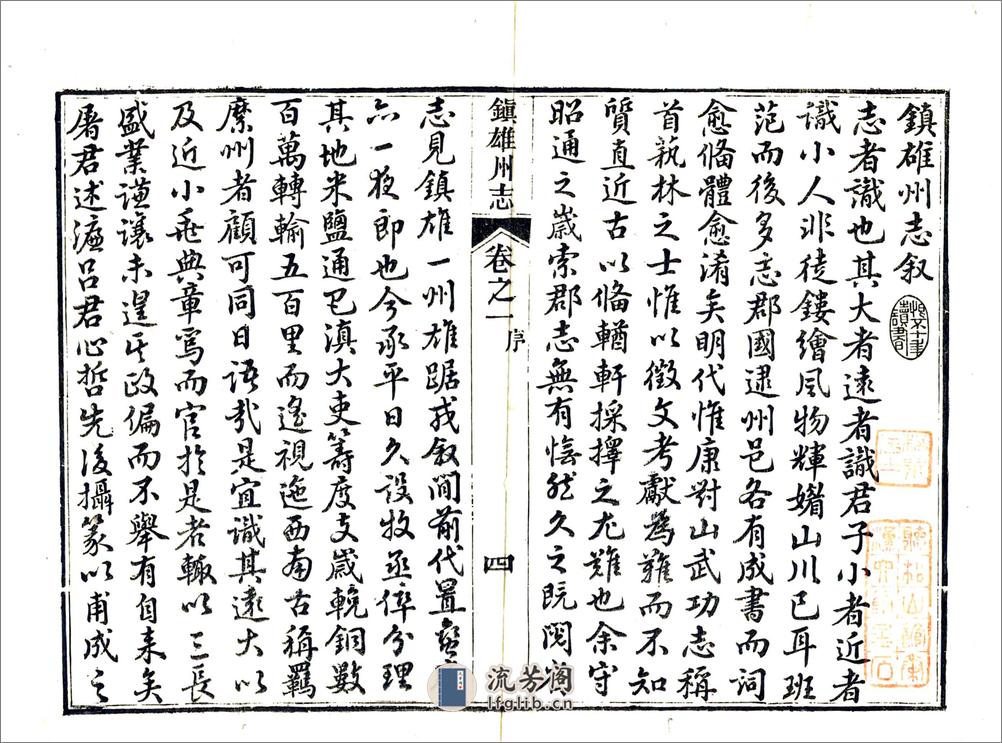 鎮雄州志叙
志者識也其大者遠者識君子小者近者
識小人非徒鏤繪風物輝媚山川已耳班
范而後多志郡國逮州邑各有成書而詞
愈偹體愈淆矣明代惟康對山武功志稱
首執林之士惟以徵文考獻為難而不知
質直近古以偹輶軒採擇之尤難也余守
昭通之歲索郡志無有悋然久之既閱
鎮雄州志 卷之一 序 四
志見鎮雄一州雄踞戎叙間前代置
六一夜即也今承平日久設牧丞倅分理
其地米鹽通巴滇大吏籌度支歲輓銅數
百萬轉輸五百里而遙視迤西南古稱羈
縻州者顧可同日語哉是宜識其遠大以
及近小垂典章焉而官於是者輙以三長
盛業謙讓未遑以政偏而不舉有自来矣
屠君述濂吕君心哲先後攝篆以甫成之
流芳阁
lfglib.cn